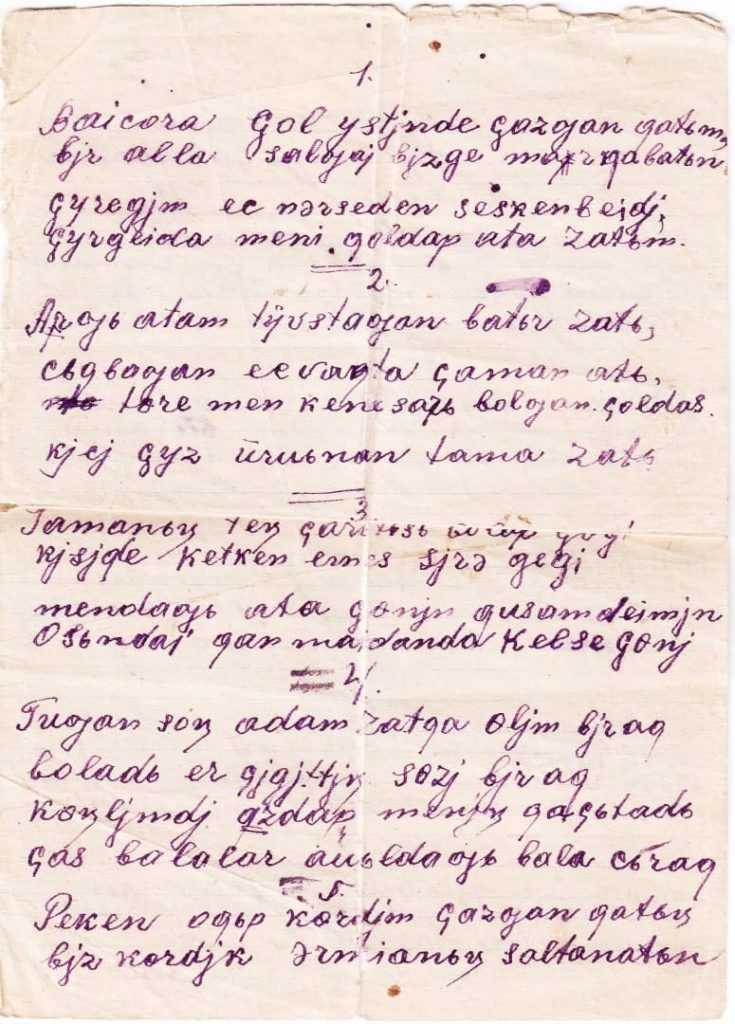 1.
Baicora Çol ystjnde çazƣan qatьn,
bjr alla salƣaj bjzge maxrqabatьn
çyregjm ec nərseden seskenbeidj,
çyrgeida meni qoldap ata zatьm.
2.
Arƣь atam tüvstaƣan batьr zatь,
cьƣbaƣan ecvaqta çaman atь,
tɵre men kenesarь bolƣan çoldas.
kjcj çyz ürusnan tama zatь
3
Tamanьꞑ teꞑ
kjsjde ketken emes sjrə gegi
mendaƣь ata çɵnjn qusamdeimjn
Osьndai qan majdanda kelse çɵnj
4.
Tuƣan sɵꞑ adam zatqa ɵljm bjraq
boladь er çjgjttjꞑ sɵzj bjraq
kɵꞑljmdj qozdap menjꞑ qaçьtadь
ças balalar auьldaƣь bala cьraq
5.
Peken oqьp kɵrdjm çazƣan qatьꞑ
bjz kɵrdjk ərmianьꞑ saltanatьn